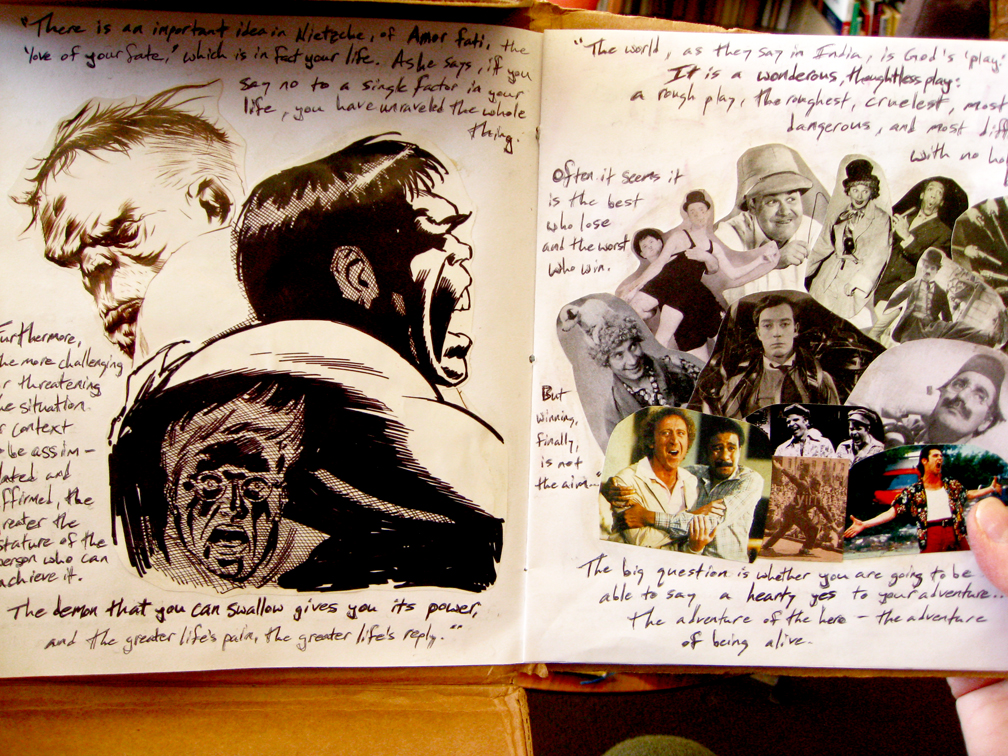 "There is an important idea in Nietzche, of Amor fati, the
'love of your fate,' which is in fact your life. As he says, if you
say no to a single factor in your
life, you have unraveled the whole
thing.
Furthermore,
the more challenging
or threatening
the situation
or context
be assim-
lated and
affirmed, the
greater the
stature of the
person who can
achieve it.
The demon that you can swallow gives you its power,
and the greater life's pain, the greater life's reply."
"The world, as they say in India, is God's 'play.'
It is a wonderous, thoughtless play:
a rough play, the roughest, cruelest, most
dangerous, and most
with no
Often it seems it
is the best
who lose
and the worst
who win.
But
winning,
finally,
is not
the aim..."
The big question is whether you are going to be
able to say a hearty yes to your adventure...
the adventure of the hero - the adventure
of being alive.